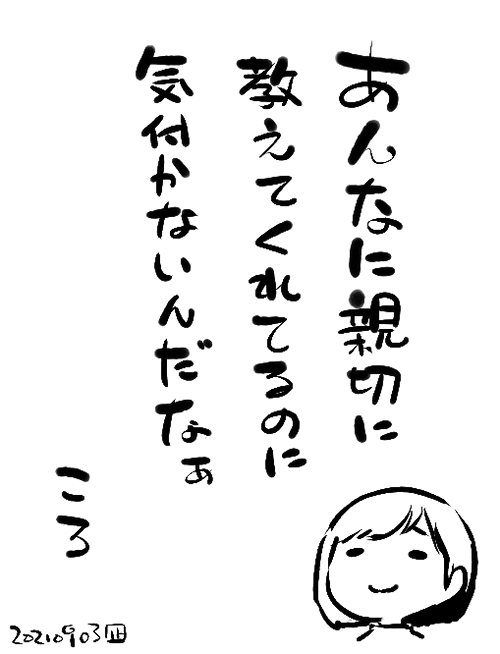 あんなに親切に
教えてくれてるのに
気付かないんだなぁ
ころ
20210903凪